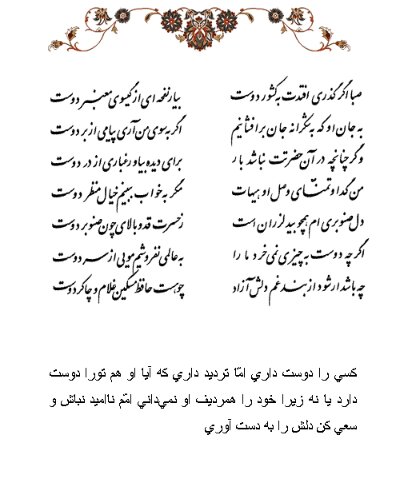 صبا اگر گذری افتدت به کشور دوست بیار نفحه‌ای از گیسوی معنبر دوست
به جان او که به شکرانه جان برافشانم اگر به سوی من آری پیامی از بر دوست
و گر چنانچه در آن حضرتت نباشد بار برای دیده بیاور غباری از در دوست
من گدا و تمنای وصل او هیهات مگر به خواب ببینم خیال منظر دوست
دل صنوبری‌ام همچو بید لرزان است ز حسرت قد و بالای چون صنوبر دوست
اگر چه دوست به چیزی نمی‌خرد ما را به عالمی نفروشیم مویی از سر دوست
چه باشد ار شود از بند غم دلش آزاد چو هست حافظ مسکین غلام و چاکر دوست
كسي را دوست داري امّا ترديد داري كه آيا او هم تورا دوست
دارد يا نه زيرا خود را همرديف او نمي‌داني امّم نااميد نباش و
سعي كن دلش را به دست آوري